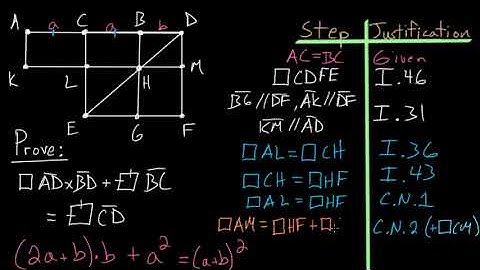 A a C a B b D
K L H M
E G F
Prove:
□ A̅D̅ x B̅D̅ + □ B̅C̅
= □ C̅D̅
(2a+b)·b + a² = (a+b)²
Step Justification
AC=BC Given
□CDFE I.46
B̅G̅//D̅F̅, A̅K̅//D̅F̅ I.31
K̅M̅//A̅D̅
□AL=□CH I.36
□CH=□HF I.43
□AL=□HF C.N.1
□AM=□HF+□ C.N.2 (+□CM)